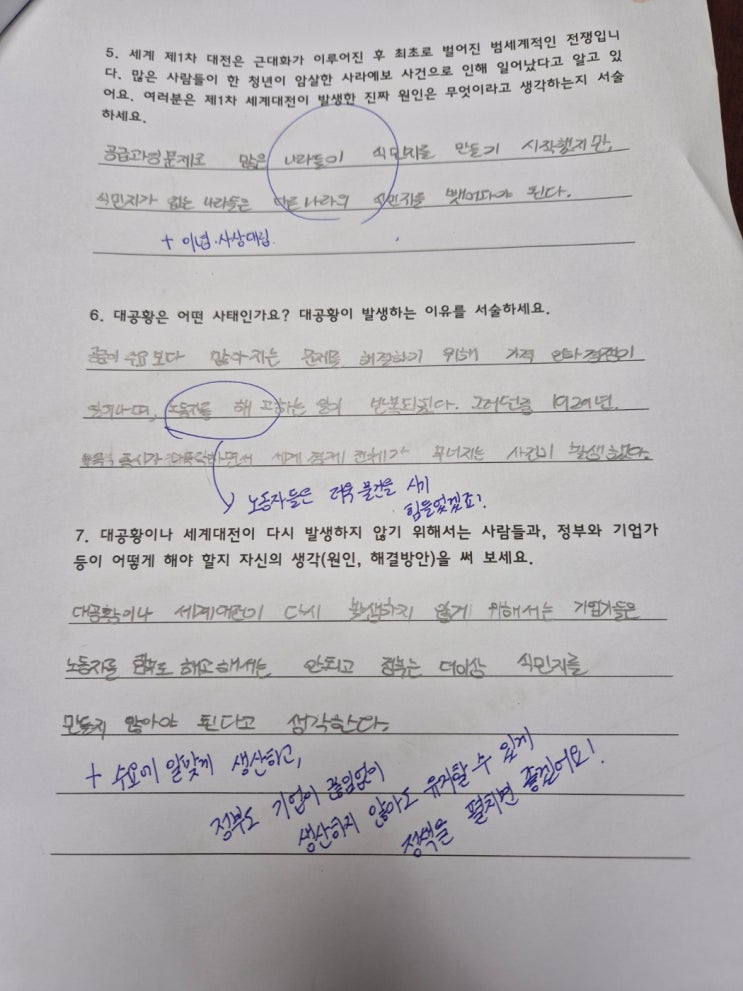 5. 세계 제1차 대전은 근대화가 이루어진 후 최초로 벌어진 범세계적인 전쟁입니
다. 많은 사람들이 한 청년이 암살한 사라예보 사건으로 인해 일어났다고 알고 있
어요. 여러분은 제1차 세계대전이 발생한 진짜 원인은 무엇이라고 생각하는지 서술
하세요.
공급과잉문제로 많은 나라들이 식민지를 만들기 시작했지만,
식민지가 없는 나라들은 다른 나라의 식민지를 뺏어다야 된다.
+ 이념·사상대립
6. 대공황은 어떤 사태인가요? 대공황이 발생하는 이유를 서술하세요.
공급이 수요보다 많아지는 문제를 해결하기 위해 가격 인하 경쟁이
일어나며, 노동자를 해고하는 일이 반복되친다. 그러던중 1929년.
증시가 대폭락하면서 세계 경제 전체가 무너지는 사건이 발생했다.
노동자들은 더욱 물건을 사기
힘들었겠죠?
7. 대공황이나 세계대전이 다시 발생하지 않기 위해서는 사람들과, 정부와 기업가
등이 어떻게 해야 할지 자신의 생각(원인, 해결방안)을 써 보세요.
대공황이나 세계대전이 다시 발생하지 않게 위해서는 기업가들은
노동자를 함부로 해고해서는 안되고 정부는 더이상 식민지를
만들지 않아야 된다고 생각한다.
+ 수요에 알맞게 생산하고,
정부도 기업이 끊임없이
생산하지 않아도 유지할 수 있게
정책을 펼치면 좋겠어요!